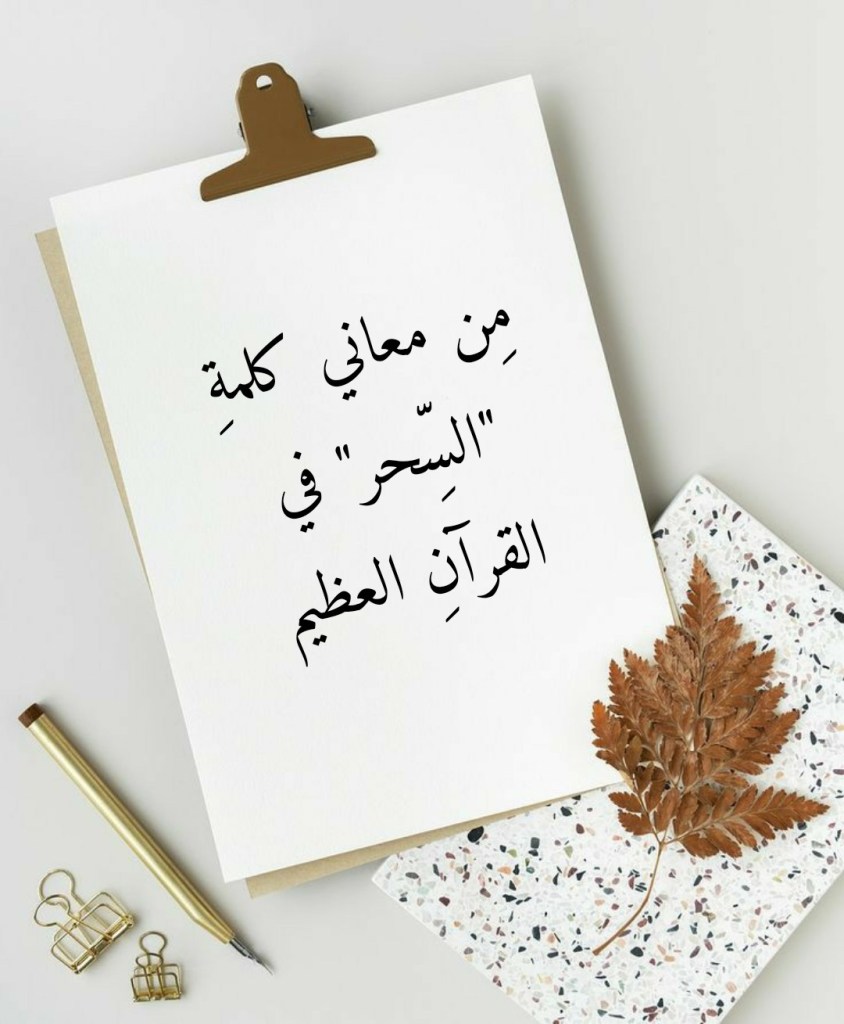 مِن معاني كلمةِ
"السِّحر" في
القرآنِ العظيم